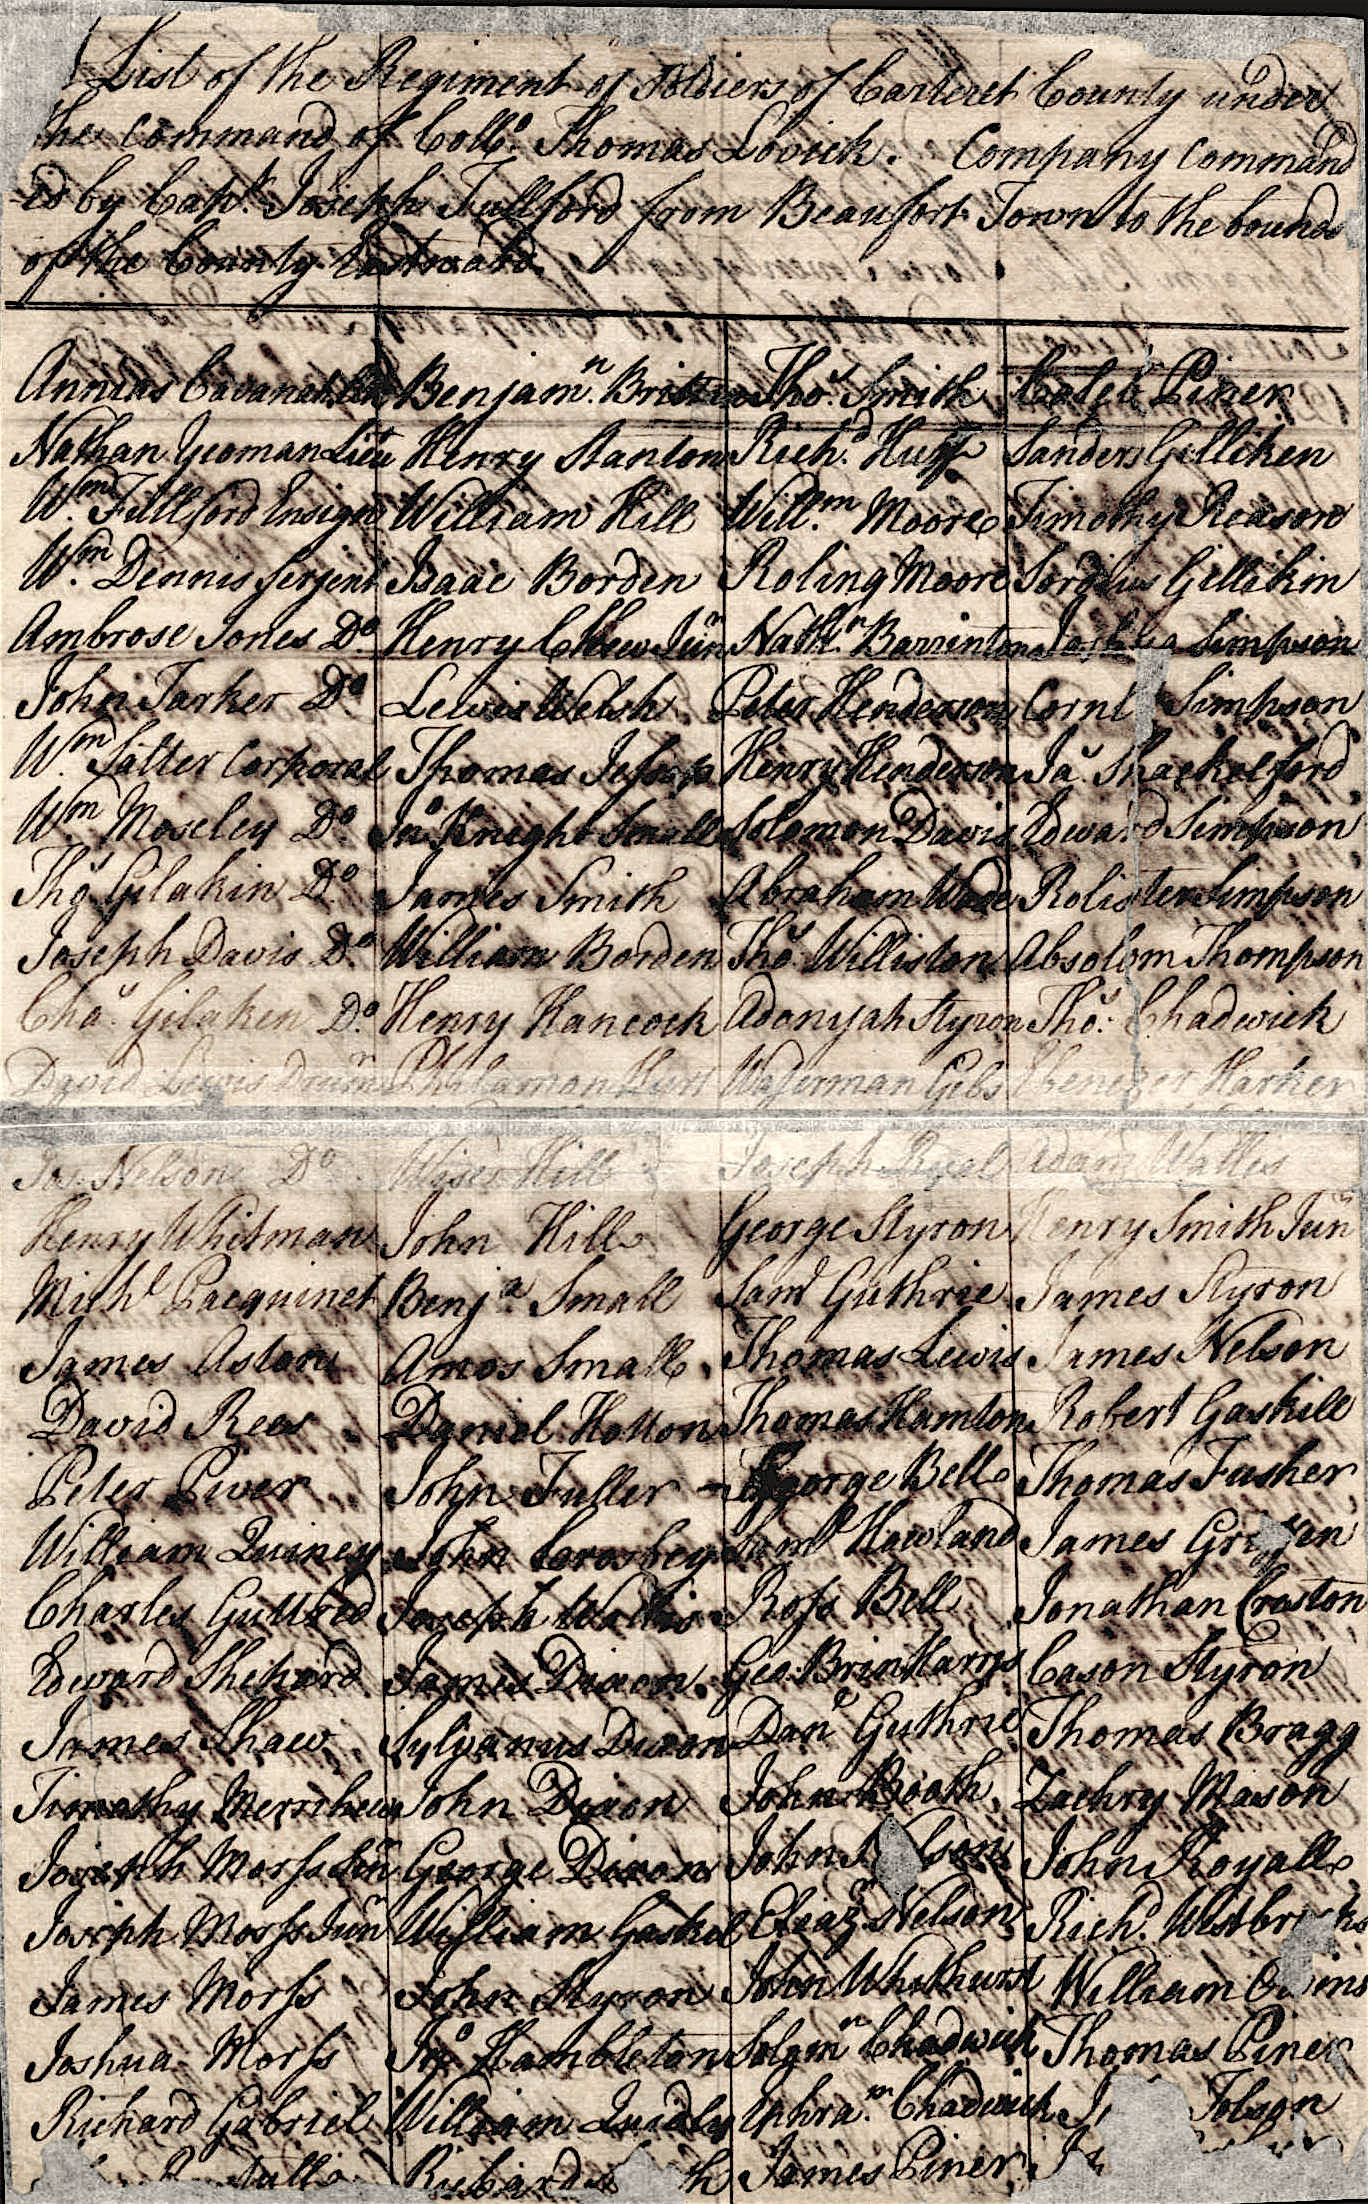 List of the Regiment of Soldiers of Carteret County under
the Command of Collo. Thomas Lovick. Company command
ed by Capt. Joseph Fullford from Beaufort Town to the bounds
of the County Eastward.
Annias Cavanah Benjamn. Thos. Smith Caleb Piner
Nathan Yeoman Lieu Henry Stanton Richd. Huff Sanders Gilliken
Wm. Fullford Ensign William Hill Willm. Moore Timothy Reason
Wm. Dennis Serjent Isaac Borden Roling Moore Gillikin
Ambrose Jones Do. Henry Chew Jun Nathn. Barrinton Joshua Simpson
John Do. Lewis Welsh Peter Henderson Cornl Simpson
Wm. Salter Corporal Thomas Jessop Henry Henderson Ja. Shackelford
Wm. Moseley Do Jno. Knight Small Solomon Davis Edward Simpson
Thos Gilakin Do. James Smith Abraham Wade Rolister Simpson
Joseph Davis Do. William Borden Thos. Williston Absolom Thompson
Chas. Gilaken Do. Henry Hancock Adonyah Styron Thos. Chadwick
David Lewis Drumr Philamon Waserman Gibs Ebenezer Harker
Jos. Nelson Do Hill Joseph Ryal Adam Wallis
Henry Whitman John Hill George Styron Henry Smith Jun
Michl Pacquinet Benja. Small Saml Guthrie James Styron
James Aston Amos Small Thomas Lewis James Nelson
David Rees Daniel Hotton Thomas Hamton Robert Gaskill
Peter Piver John Fuller George Bell Thomas Fusher
William Quiney John Crosbey Saml Howland James
Charles Guttred Joseph Wallis Ross Bell Jonathan Croston
Edward Shehard James Dixon Geo. Brin Harris Cason Styron
James Shaw Sylvanus Dixon Danl Guthrie Thomas Bragg
Timothy Merrihew John Dixon John Booth Zachry Mason
Joseph Morss Sen George Dixon John John Royall
Joseph Morss Jun William Gaskil Eliazr Nelson Richd.
James Morss John Styron John Whithurst William
Joshua Morss Jno. Hambleton Solomn Chadwick Thomas Piner
Richard Gabriel William Quidly Ephram. Chadwick Tolson
Richard James Piner